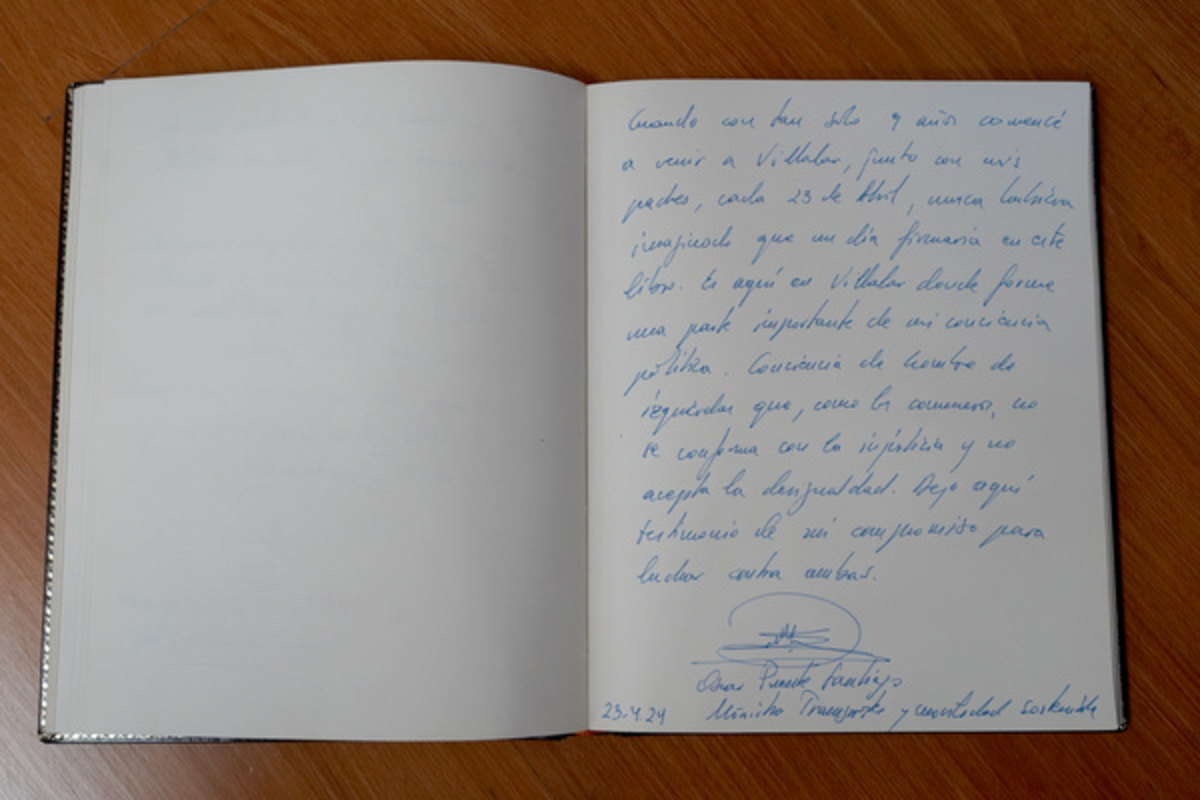 Cuando con tan solo 9 años comencé
a venir a Villalar, junto con mis
padres, cada 23 de Abril, nunca hubiera
imaginado que un día firmaria en este
libro. Es aquí en Villalar donde forme
una parte importante de mi conciencia
política. Conciencia de hombre de
izquierdas que, como los comuneros, no
se conforma con la injusticia y no
acepta la desigualdad. Dejo aquí
testimonio de mi compromiso para
luchar contra ambas.
Oscar Puente Santiago
23.4.24 Ministro Transportes y movilidad Sostenible